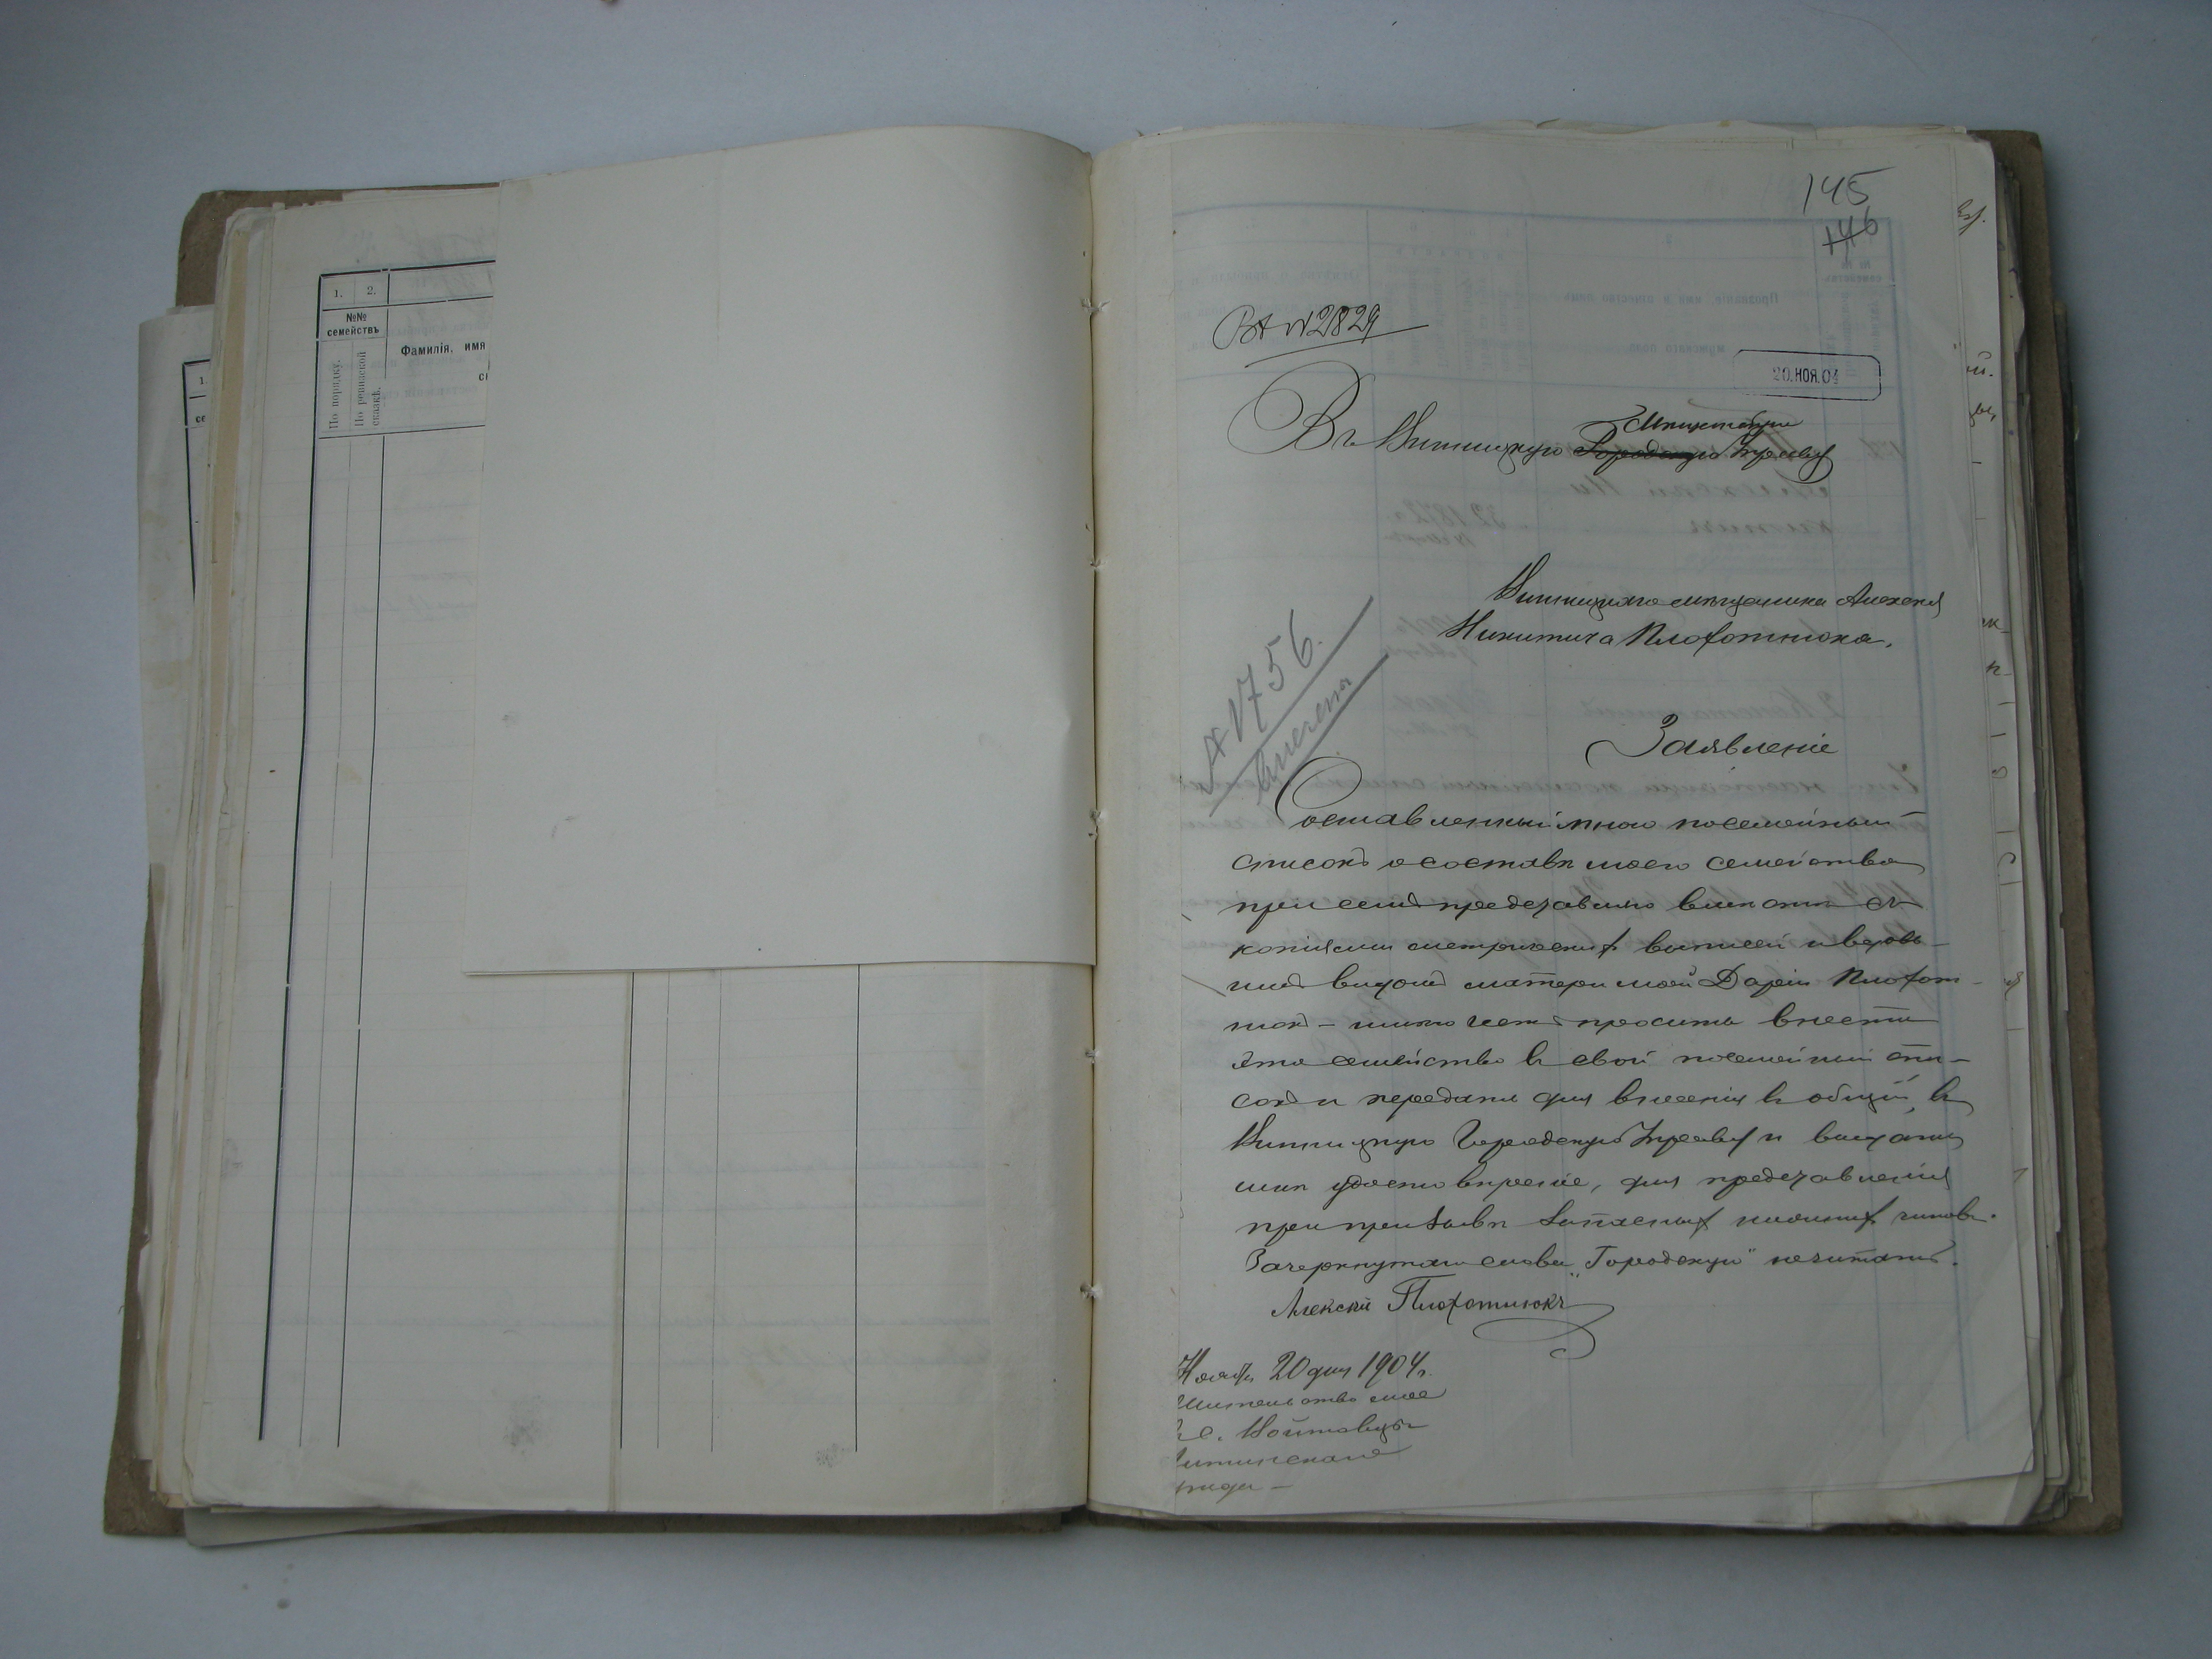 1.
2.
№№
семействъ
По порядку.
По ревизской
сказкѣ.
Фамилія, имя
145
146
Вх N 2829
20.НОЯ.04
Мѣщанскую
Въ Винницкую Городскую Управу
Винницкаго мѣщанина Алексея
Никитича Плохотнюка.
№ 1756.
Внесена
Заявленіе
Составленный мною посемейный
списокъ о составѣ моего семейства
при семъ представляю вмѣстѣ съ
копіями метрическихъ выписей и вдовь-
имъ видомъ матери моей Даріи Плохот-
нюкъ – имѣю честь просить внести
это семейство въ свой посемейный спи-
сокъ и передать для внесенія въ общій, въ
Винницкую Городскую Управу и выдать
мнѣ удостовѣреніе, для представленія
при призывѣ запасныхъ нижнихъ чиновъ.
Зачеркнутое слово „Городскую" не читать.
Алексѣй Плохотнюкъ
Ноября 20 дня 1904 г.
Жительство мое
с. Войтовцы
Литинскаго
уѣзда –